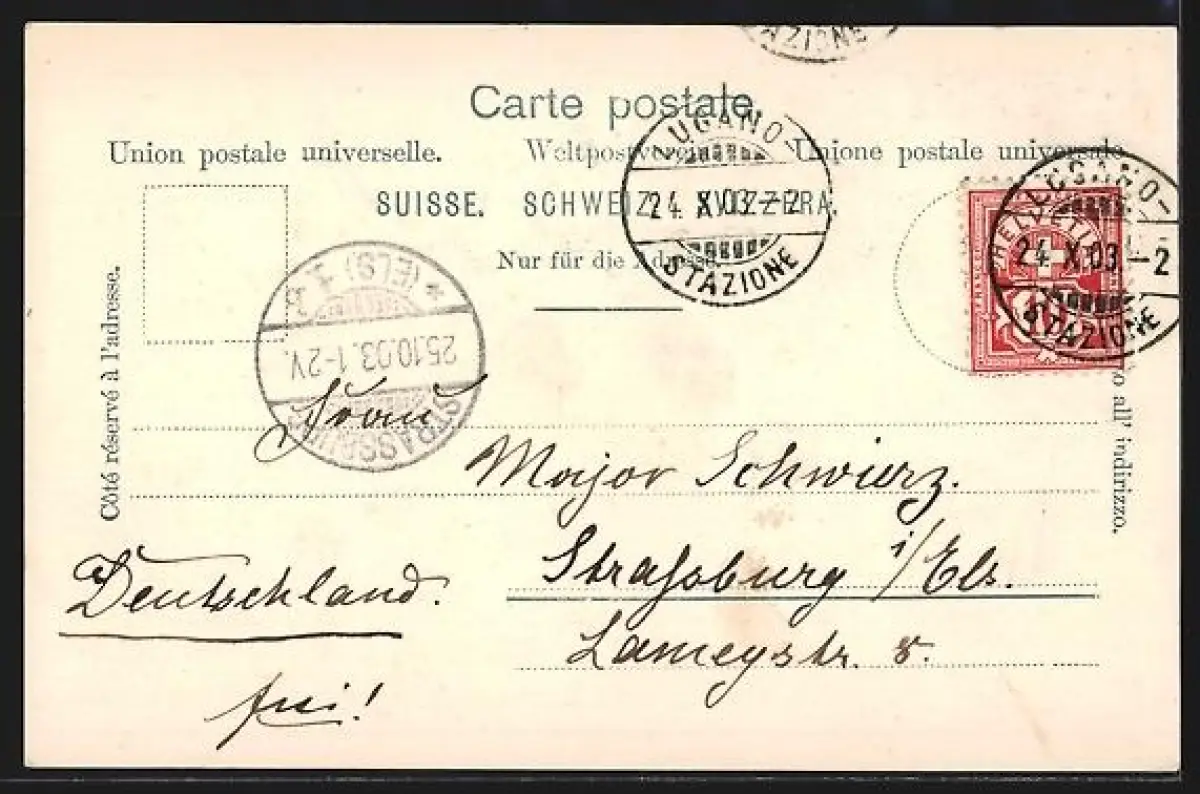 AZIONE
Carte postale.
Union postale universelle. Weltpostverein Unione postale universale
SUISSE. SCHWEIZ. SVIZZERA.
Nur für die Adresse.
Côté réservé à l'adresse.
all' indirizzo.
LUGANO
24. X. 03 – 2
STAZIONE
LUGANO
24. X. 03 – 2
STAZIONE
HELVETIA
FRANCO
* (ELS) 1.
25.10.03. 1-2V.
STRASSBURG
Frau
Major Schwierz.
Straßburg i/Els.
Lameystr.
Deutschland.
frei!